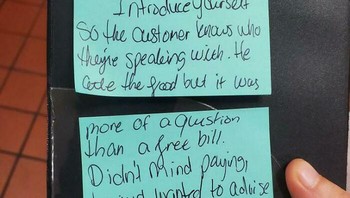 Introduce yourself
So the customer knows who
they're speaking with. He
the food but it was
more of a question
than a free bill.
Didn't mind paying,
wanted to advise